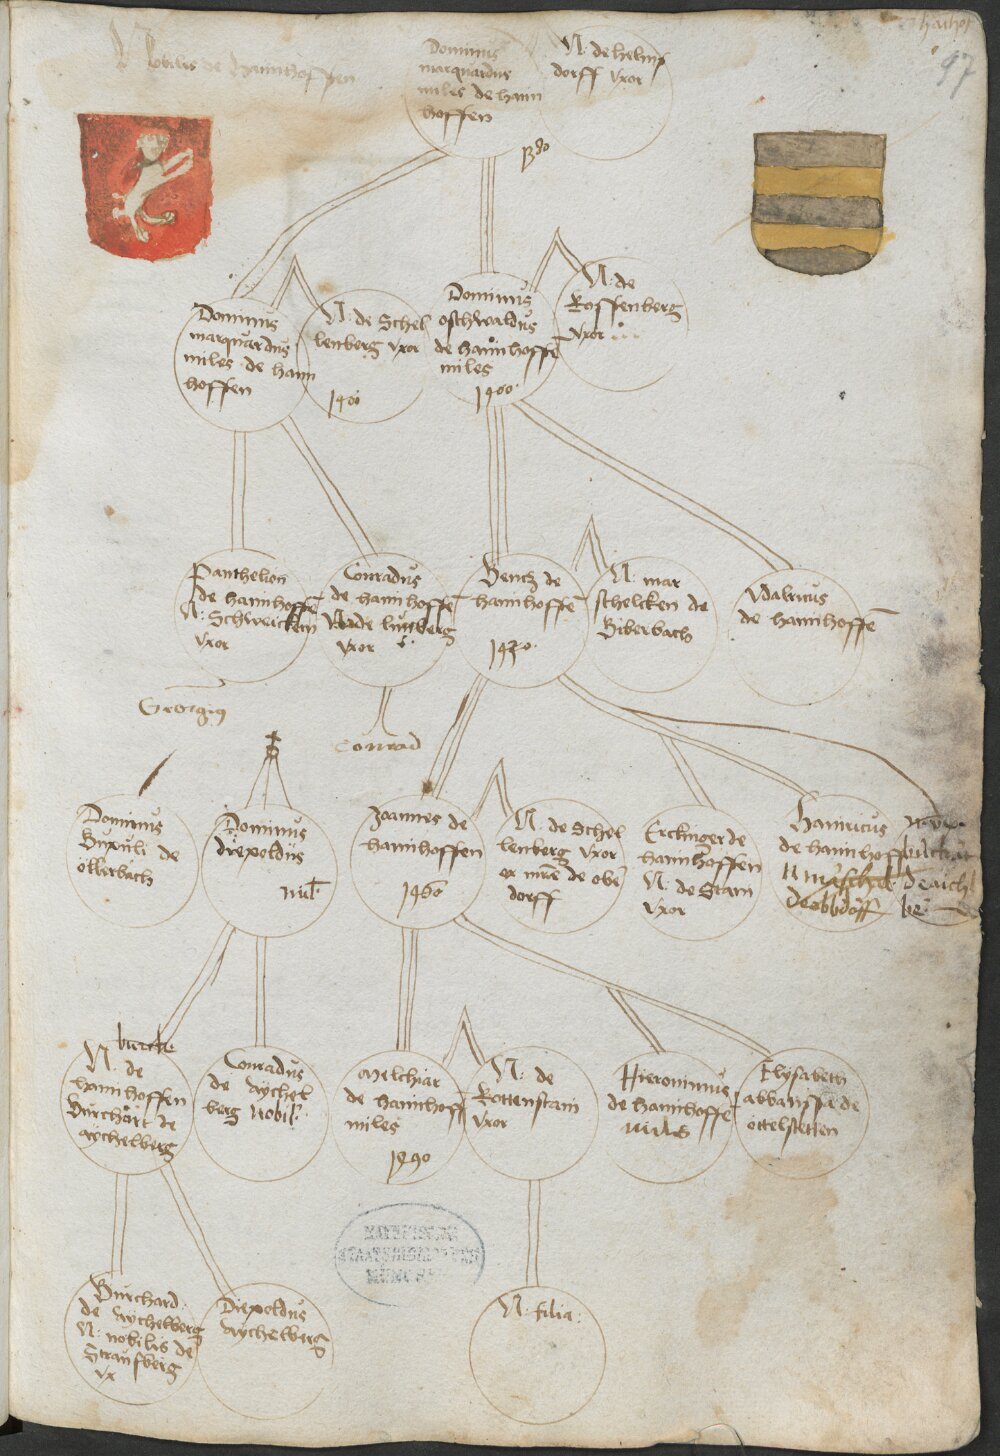 Nobiles de hannhoffen
97
Dominus
marquardus
miles de hann
hoffen
N. de helms
dorff vxor
Dominus
marquardus
miles de hann
hoffen
N. de Schel
lenberg vxor
1400
Dominus
oschwaldus
de hannhoffe
miles
1400
N. de
Roffenberg
vxor
Panthelion
de hannhoffe
N. Schweickem
vxor
Conradus
de hannhoffe
vxor
Hentz de
hannhoffe
N. mar
schelcken de
Biberbach
Vdalricus
de hannhoffe
Georgius
Conrad
Dominus
de
ollerbach
Dominus
diepoldus
mil
Joannes de
hannhoffen
1460
N. de Schel
lenberg vxor
ex mre de obe
dorff
Erckinger de
hannhoffen
N. de Stain
vxor
Hainricus
de hannhoffe
N. de
hannhoffen
Burchart de
aychelberg
Conradus
de aychel
berg nobil.
Melchiar
de hannhoff
miles
1490
N. de
Rottenstain
vxor
Hieronimus
de hannhoffe
miles
Elysabeth
abbatissa de
ottelstetten
BAYERISCHE
STAATSBIBLIOTHEK
MÜNCHEN
Burchard
de aychelberg
N. nobilis de
Straufberg
vx
Diepoldus
aychelberg
N. filia